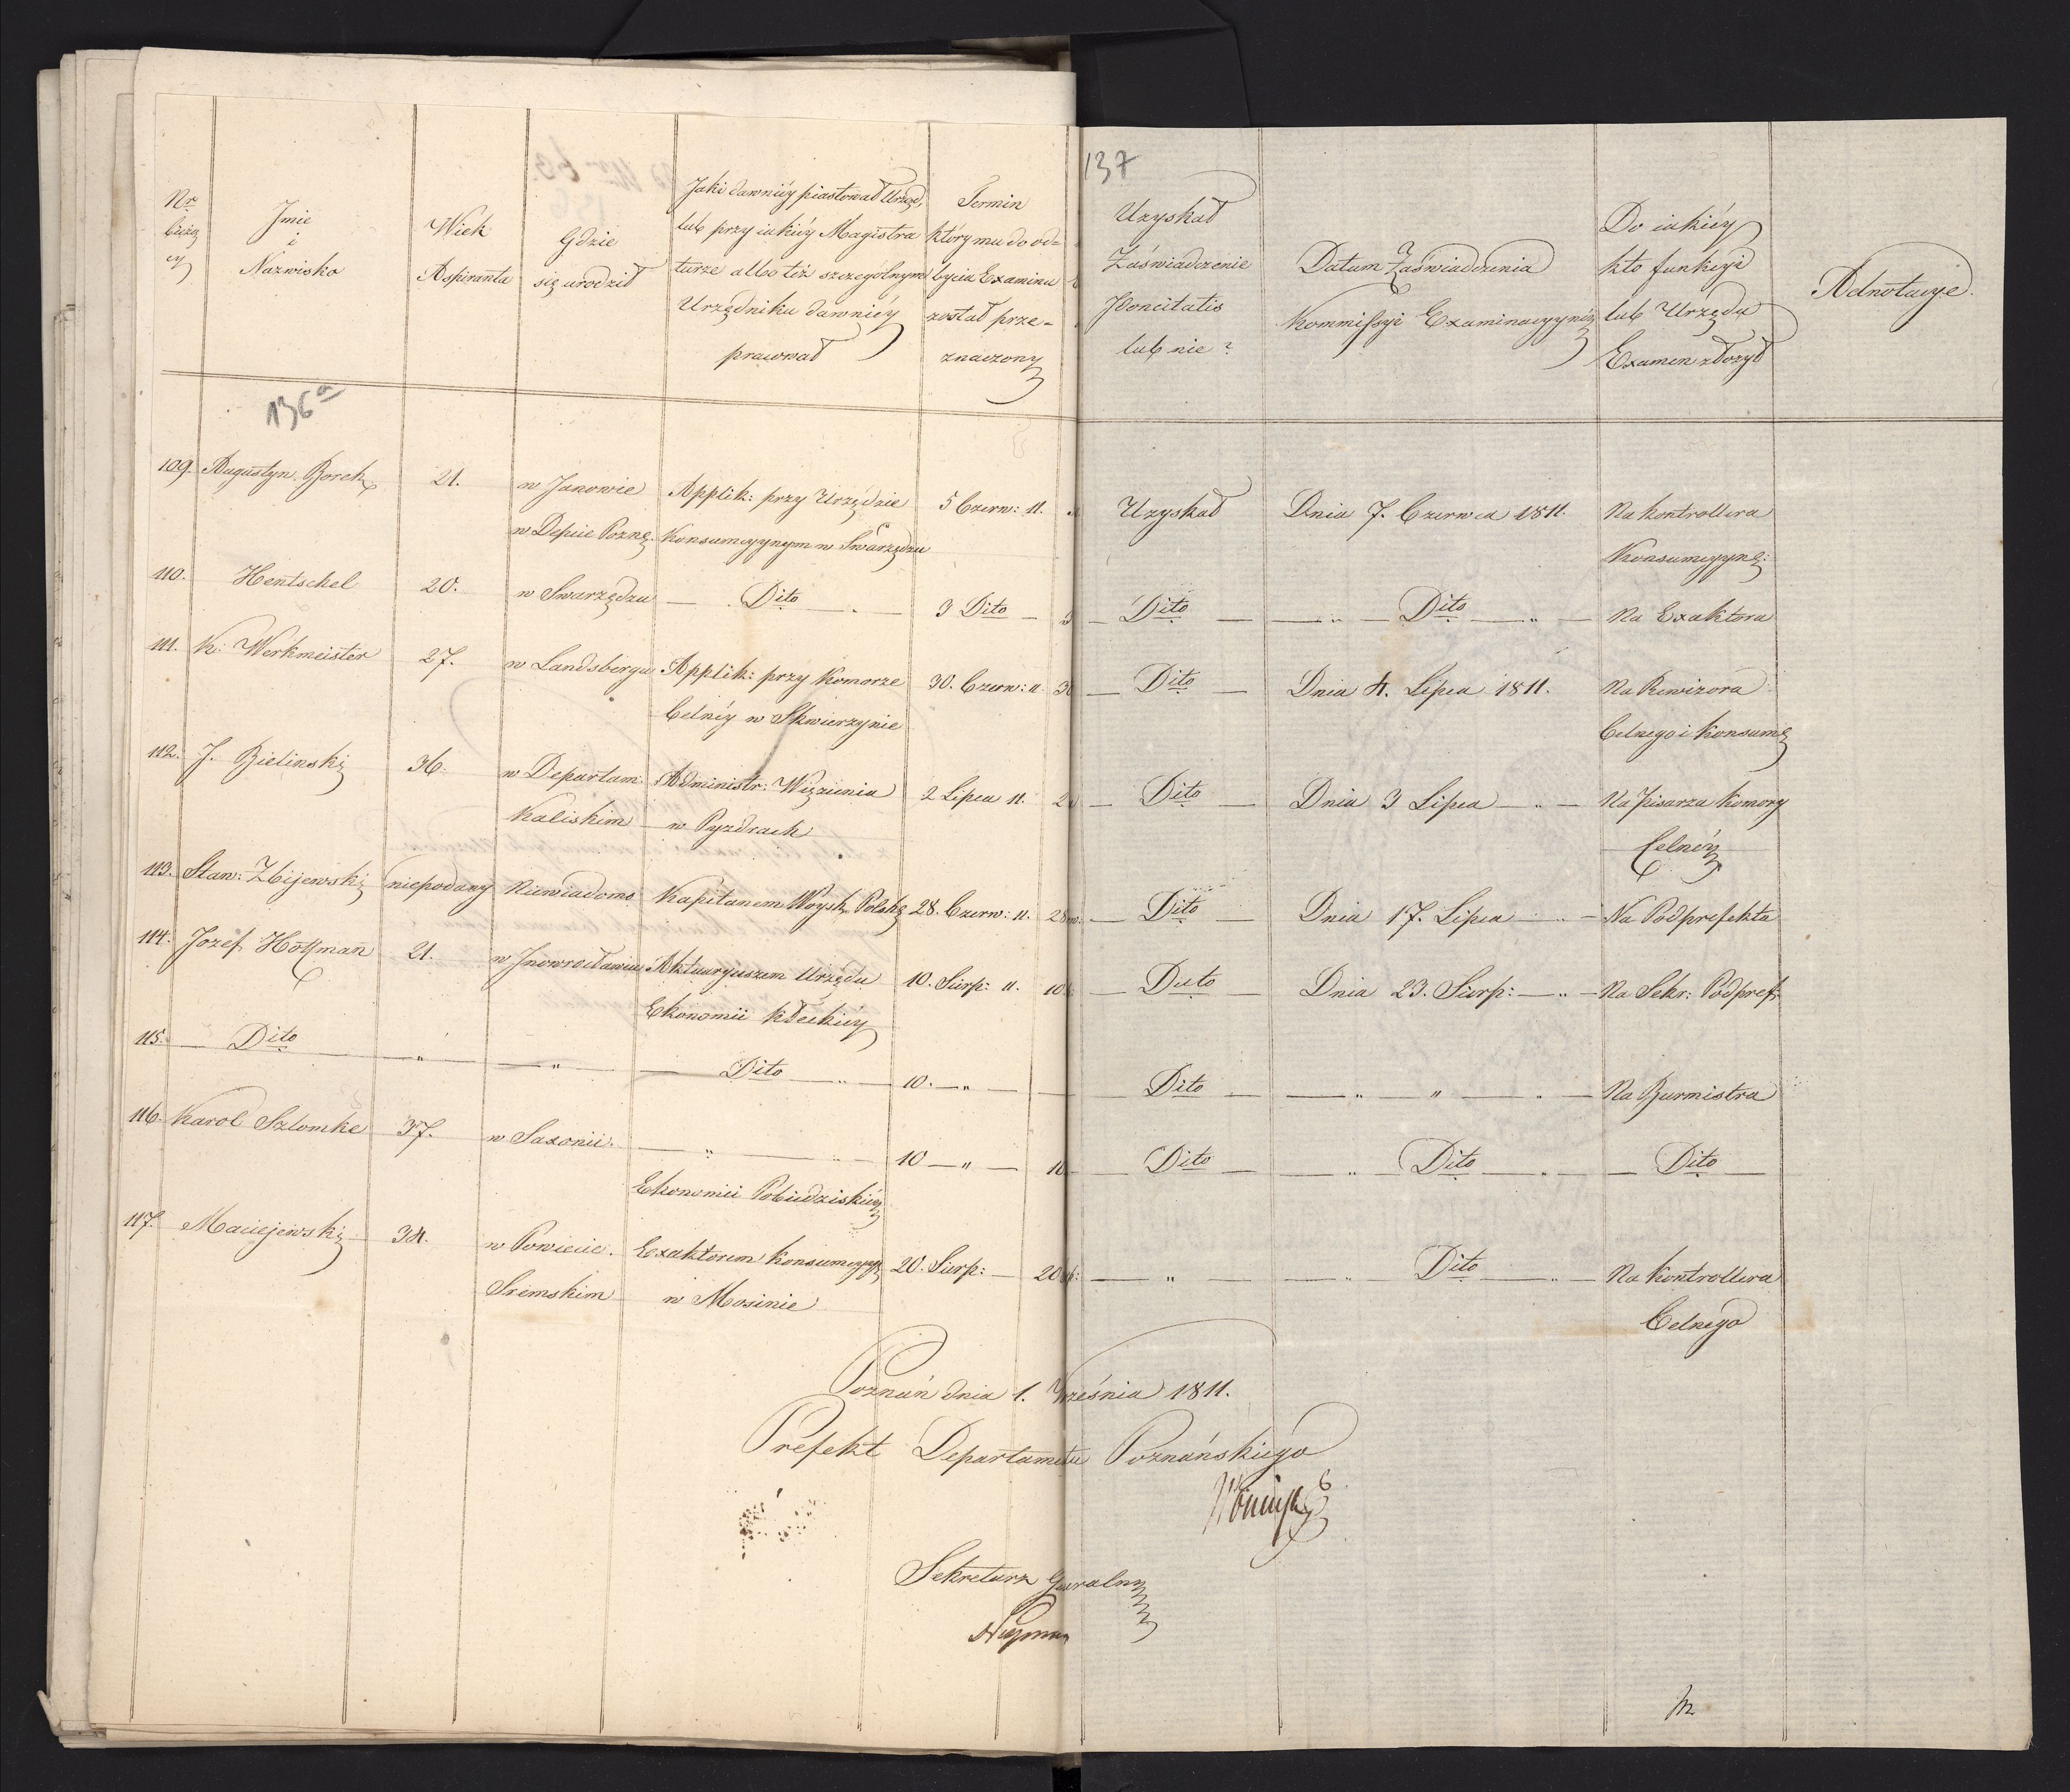 137
Nr
bieżą
cy
Jmie
i
Nazwisko
Wiek
Aspiranta
Gdzie
się urodził
Jaki dawniéy piastował Urząd,
lub przy iakiéy Magistra
turze albo téż szczególnym
Urzędniku dawniéy
pracował
Termin
który mu do od=
bycia Examinu
został prze=
znaczony
Uzyskał
Zaświadczenie
Jdoneitatis
lub nie?
Datum Zaświadczenia
Kommissyi Examinacyynéy
Do iakiéy
kto funkcyi
lub Urzędu
Examen złożył
Adnotacye.
136a
109. Augustyn Borek 21. w Janowie Applik: przy Urzędzie 5 Czerw: 11. Uzyskał Dnia 7. Czerwca 1811. Na Kontrollera
w Depcie Pozn. Konsumcyynym w Swarzędzu Konsumcyyne:
110. Hentschel 20. w Swarzędzu — Dito — 3 Dito — Dito — — Dito — Na Exaktora
111. K: Werkmeister 27. w Landsbergu Applik: przy Komorze 30. Czerw: 11. 30 — Dito — Dnia 4. Lipca 1811. Na Rewizora
Celnéy w Skwierzynie Celnego i Konsum
112. J. Bielinski 36. w Departam: Administr: Więzienia 2 Lipca 11. 2 — Dito — Dnia 3 Lipca — " — Na Pisarza Komory
Kaliskim w Pyzdrach Celnéy
113. Stan: Zbijewski niepodany Niewiadomo Kapitanem Woysk Polsk 28. Czerw: 11. 28 — Dito — Dnia 17. Lipca " — Na Podprefekta
114. Jozef Hoffman 21. w Jnowrocławiu Aktuaryuszem Urzędu 10. Sierp: 11. 10 — Dito — Dnia 23. Sierp: — " — Na Sekr: Podpref:
Ekonomii Kłeckiéy
115. — Dito — " — — " — — Dito — " — 10. — " — — Dito — — " — " — Na Burmistra
116. Karol Szlomke 37. w Saxonii. — " — 10 — " — 10 — Dito — — " Dito — " — — Dito —
Ekonomii Pobiedziskiéy
117. Maciejewski 34. w Powiecie Exaktorem Konsumcyy 20. Sierp: — 20 — " — — " Dito — " — Na Kontrollera
Sremskim w Mosinie Celnego
Poznań dnia 1. Września 1811.
Prefekt Departamētu Poznańskiego
Sekretarz Gēralny